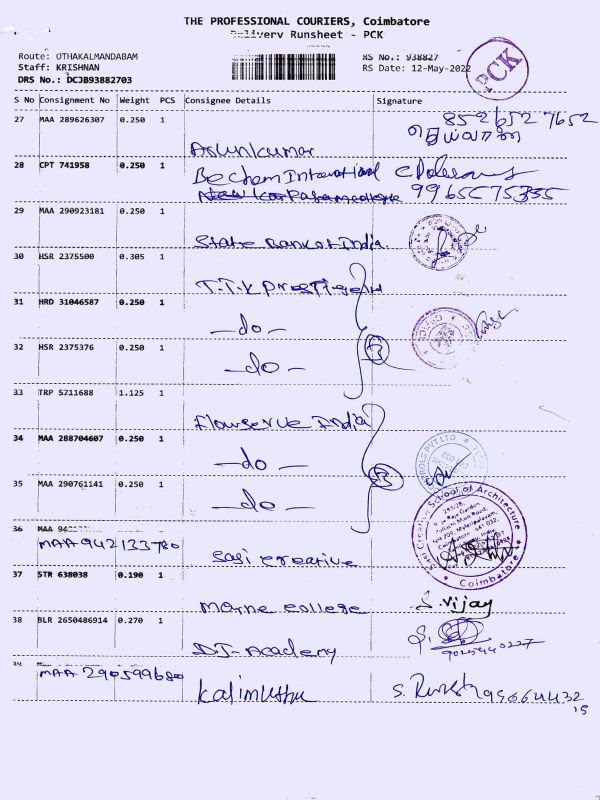 THE PROFESSIONAL COURIERS, Coimbatore
Delivery Runsheet - PCK
Route: OTHAKALMANDABAM
Staff: KRISHNAN
DRS No.: DCJB93882703
XS No.: 938827
RS Date: 12-May-2022
PCK
S No Consignment No Weight PCS Consignee Details Signature
27 MAA 289626307 0.250 1 Arunkumar 8526527652
28 CPT 741958 0.250 1 Bechem International
9965575355
29 MAA 290923181 0.250 1 State Bank of India
30 HSR 2375500 0.305 1 T.T.K Prestige
31 HRD 31046587 0.250 1 -do-
32 HSR 2375376 0.250 1 -do-
3
33 TRP 5711688 1.125 1 Flowserve India
34 MAA 288704607 0.250 1 -do-
35 MAA 290761141 0.250 1 -do-
3
School of Architecture
Coimbatore
36 MAA 942133780 Sasi creative
37 STR 638038 0.190 1 Marne college S. Vijay
38 BLR 2650486914 0.270 1 DJ-Academy
MAA 290599680 Kalimuthu